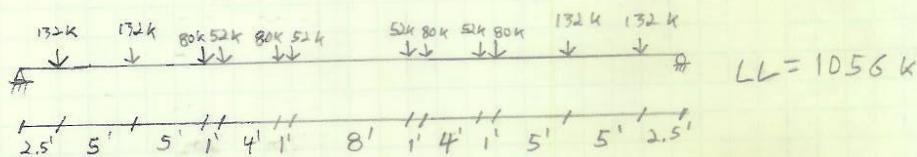 132K 132K 80K 52K 80K 52K 52K 80K 52K 80K 132K 132K
LL = 1056 K
2.5' 5' 5' 1' 4' 1' 8' 1' 4' 1' 5' 5' 2.5'